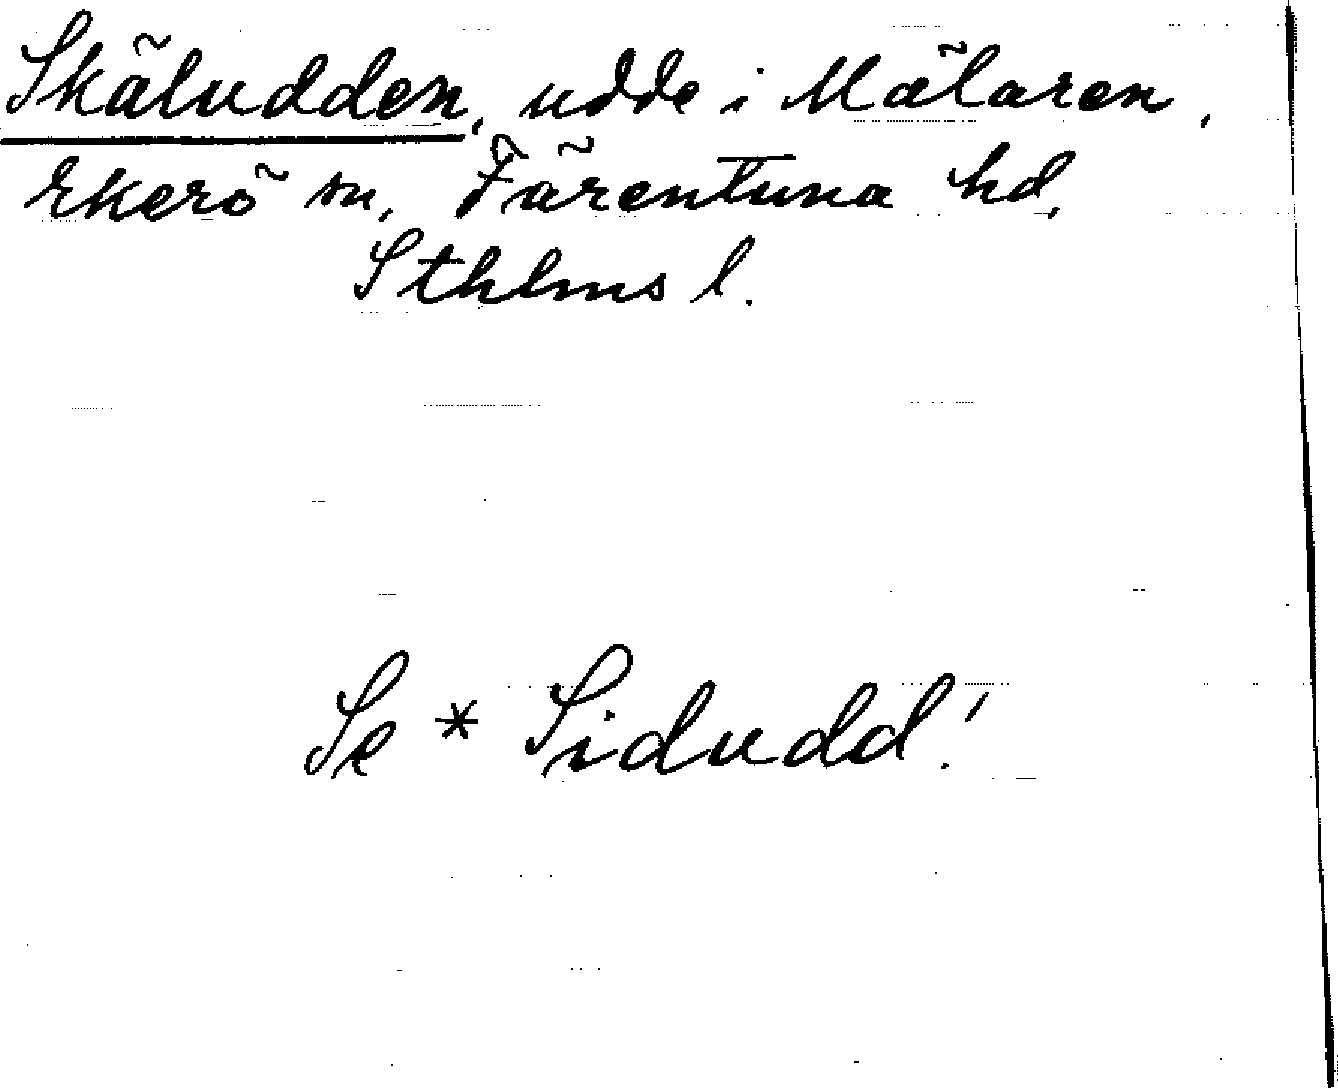 Skäludden, udde i Mälaren,
Ekerö sn, Färentuna hd,
Sthlms l.
Se * Sidudd!